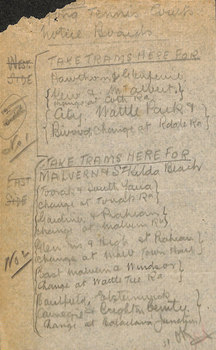 Tennis Courts
Notice Boards
WEST
SIDE
TAKE TRAMS HERE FOR
Hawthorn
Kew & Mt Albert
change at Coth Rd
City, Wattle Park &
Burwood, change at
No 1
TAKE TRAMS HERE FOR
EAST
SIDE
MALVERN & St Kilda Beach
Toorak & South Yarra
change at Toorak Rd
Gardiner & Prahran
change at Malvern Rd
Glen Iris & High St Prahran
change at Malv Town Hall
East Malvern & Windsor
Change at Wattle Tree Rd
No 2
Caulfield, Elsternwick
Carnegie &
Change at Balaclava Junction
OK